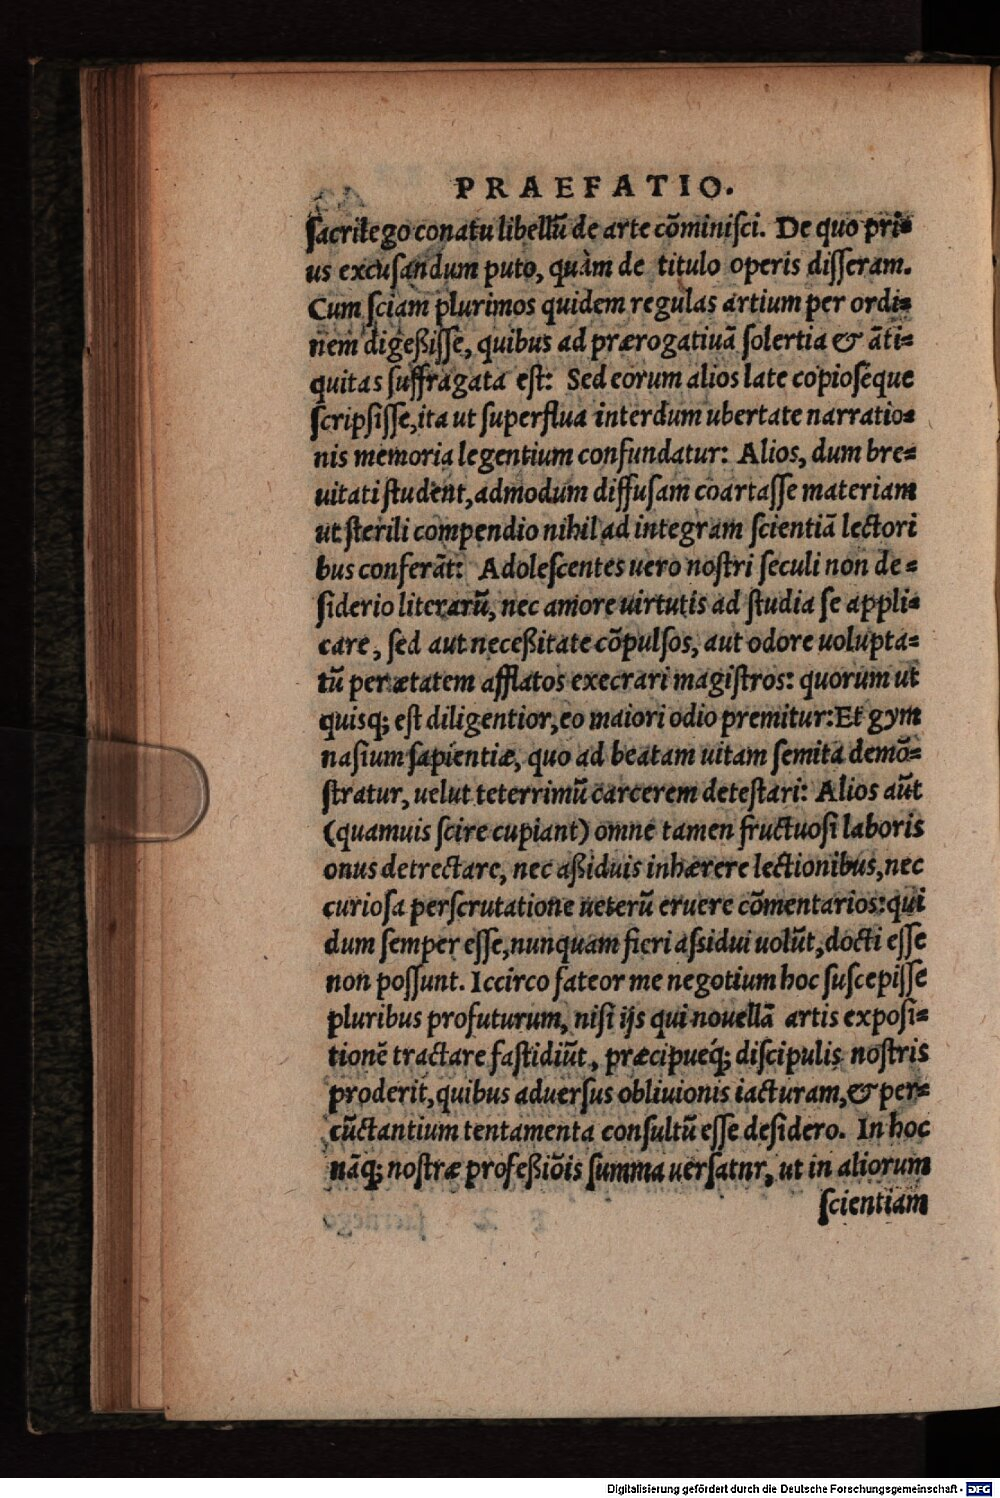 PRAEFATIO.
ſacrilego conatu libellũ de arte cõminiſci. De quo pri⸗
us excuſandum puto, quàm de titulo operis diſſeram.
Cum ſciam plurimos quidem regulas artium per ordi⸗
nem digeßiſſe, quibus ad prærogatiuã ſolertia & ãti⸗
quitas ſuffragata eſt: Sed eorum alios late copioſeque
ſcripſiſſe, ita ut ſuperflua interdum ubertate narratio⸗
nis memoria legentium confundatur: Alios, dum bre⸗
uitati ſtudent, admodum diffuſam coartaſſe materiam
ut ſterili compendio nihil ad integram ſcientiã lectori
bus conferãt: Adoleſcentes uero noſtri ſeculi non de⸗
ſiderio literarũ, nec amore uirtutis ad ſtudia ſe appli⸗
care, ſed aut neceßitate cõpulſos, aut odore uolupta⸗
tũ per ætatem afflatos execrari magiſtros: quorum ut
quisq; eſt diligentior, eo maiori odio premitur: Et gym
naſium ſapientiæ, quo ad beatam uitam ſemita demõ⸗
ſtratur, uelut teterrimũ carcerem deteſtari: Alios aũt
(quamuis ſcire cupiant) omne tamen fructuoſi laboris
onus detrectare, nec aßiduis inhærere lectionibus, nec
curioſa perſcrutatione ueterũ eruere cõmentarios: qui
dum ſemper eſſe, nunquam fieri aſsidui uolũt, docti eſſe
non poſſunt. Iccirco fateor me negotium hoc ſuſcepiſſe
pluribus profuturum, niſi ijs qui nouellã artis expoſi⸗
tionẽ tractare faſtidiũt, præcipueq́; diſcipulis noſtris
proderit, quibus aduerſus obliuionis iacturam, & per⸗
cũctantium tentamenta conſultũ eſſe deſidero. In hoc
nãq; noſtræ profeßiõis ſumma uerſatnr, ut in aliorum
ſcientiam
Digitalisierung gefördert durch die Deutsche Forschungsgemeinschaft - DFG